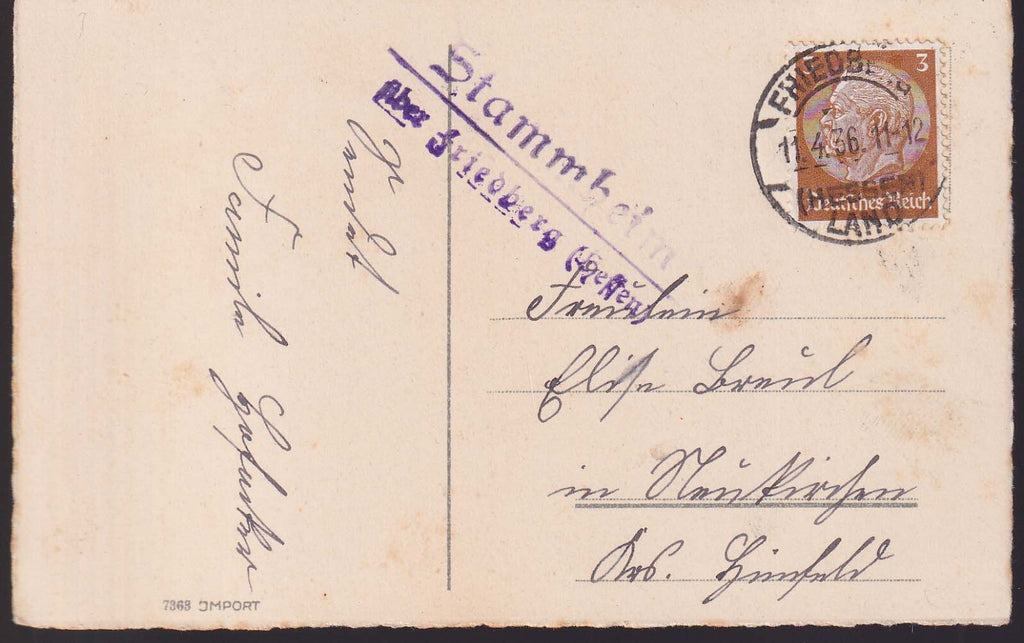 Stammheim
über Friedberg (Hessen)
FRIEDBERG
11.4.36. 11-12
(HESSEN)
LAND
3
Deutsches Reich
Fräulein
Elise Breul
in Neukirchen
Krs. Hünfeld
Familie
7363 IMPORT